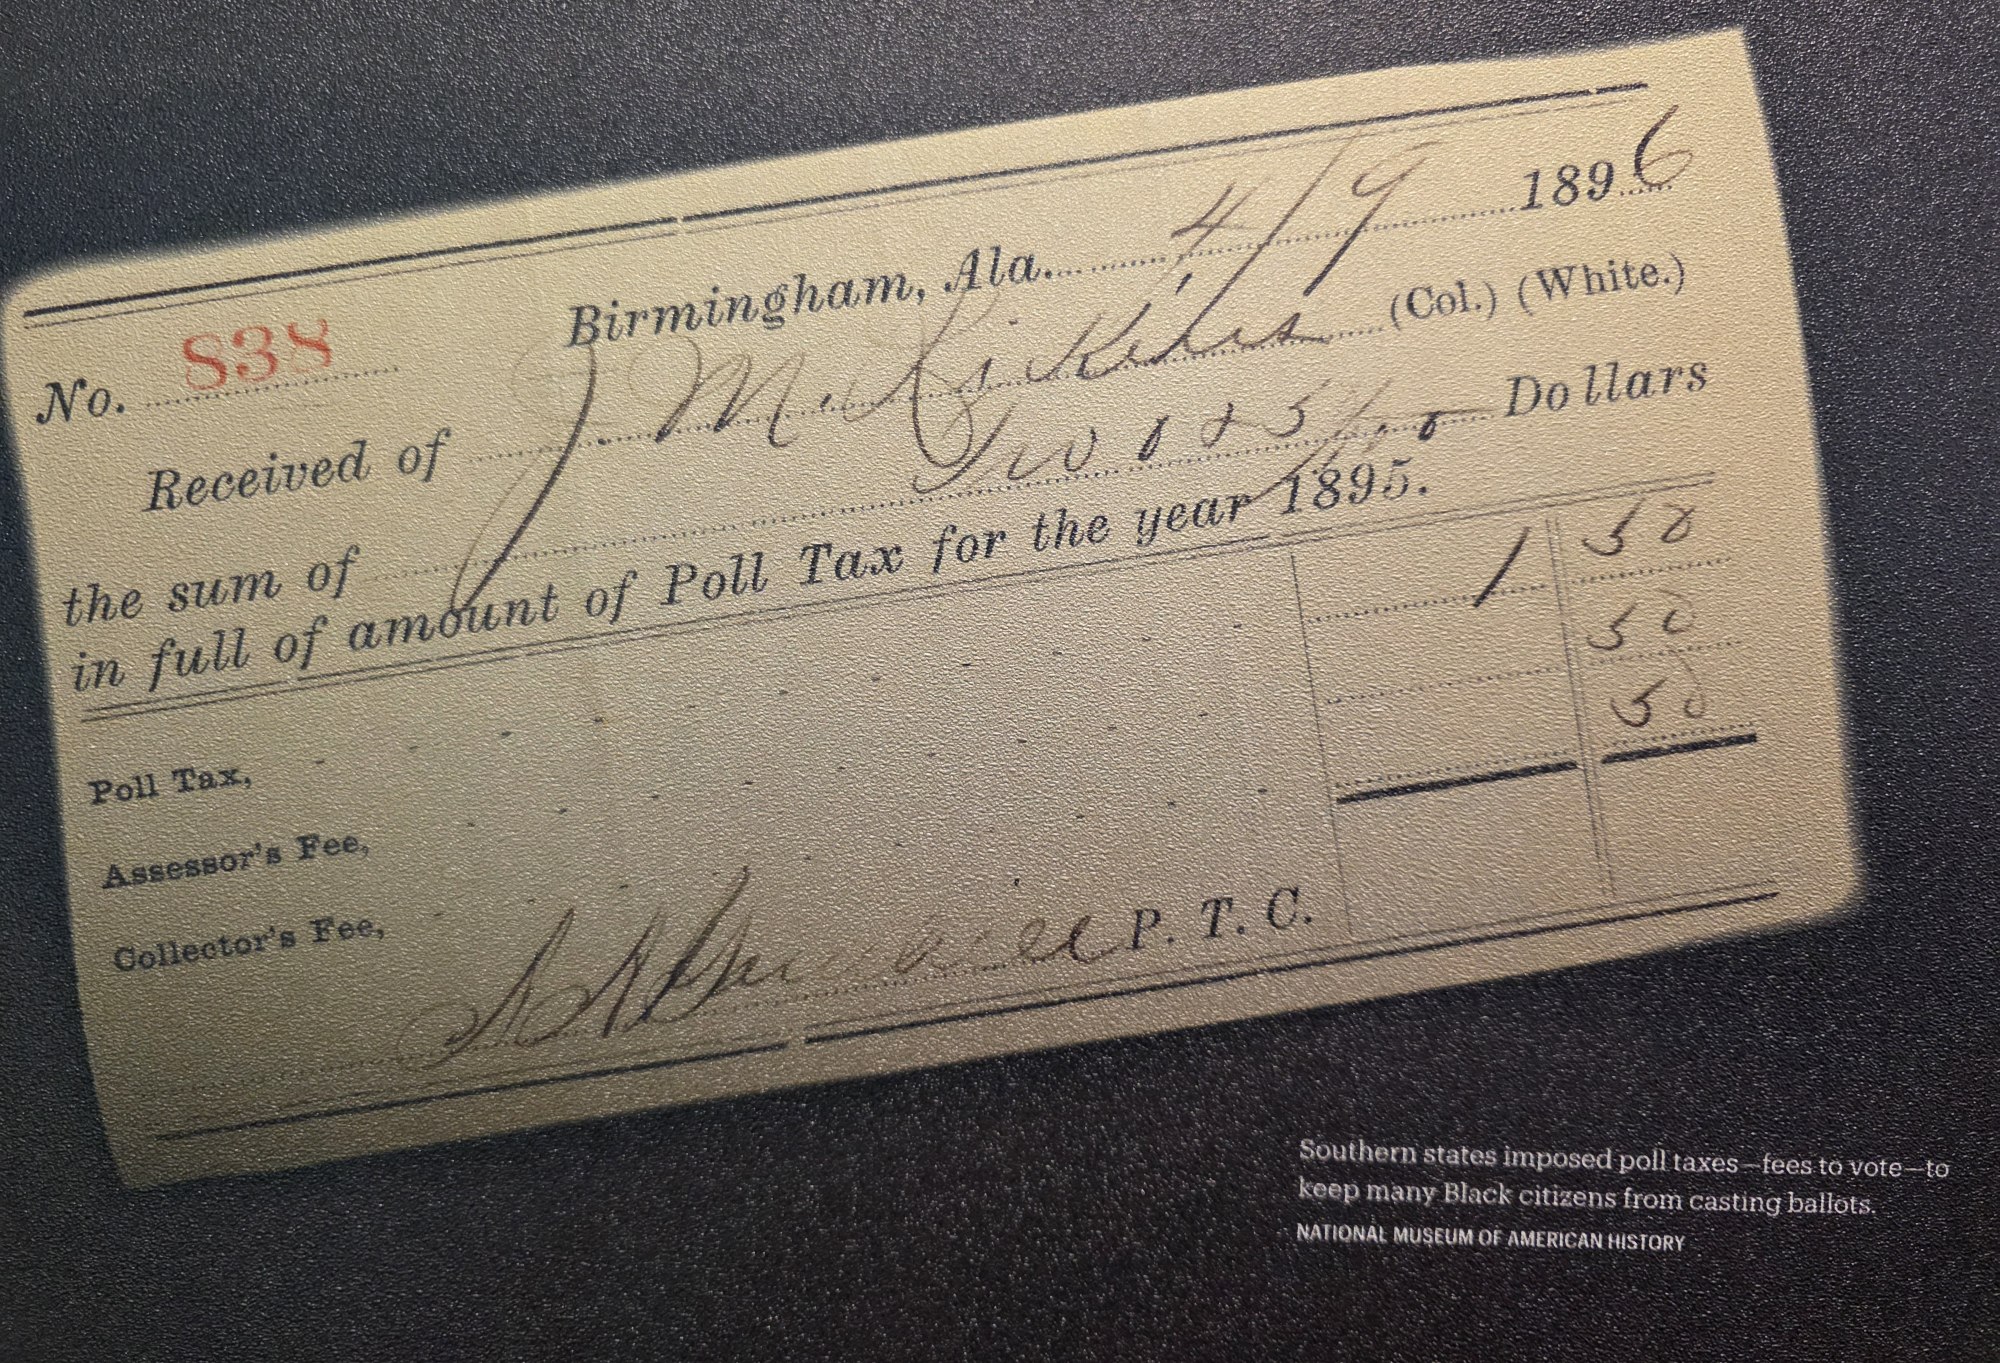 Birmingham, Ala. 4/9 1896
No. 838
Received of J. M. (Col.) (White.)
the sum of Two & 50/100 Dollars
in full of amount of Poll Tax for the year 1895.
Poll Tax, 1 50
Assessor's Fee, 50
Collector's Fee, 50
P. T. C.
Southern states imposed poll taxes—fees to vote—to
keep many Black citizens from casting ballots.
NATIONAL MUSEUM OF AMERICAN HISTORY